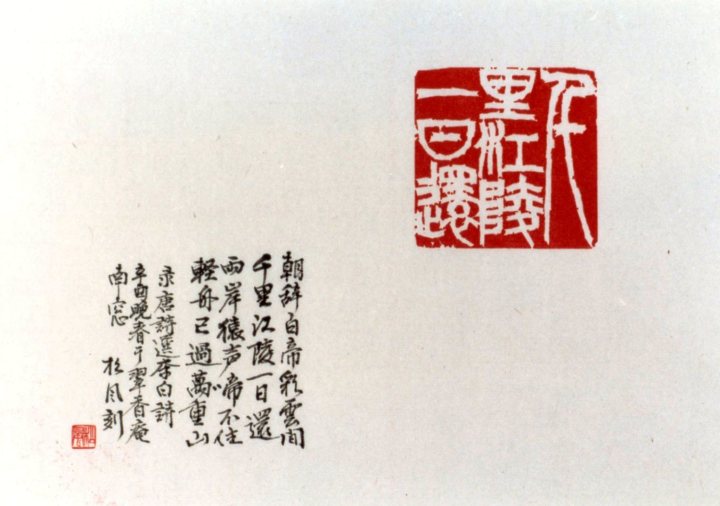 千
里江陵
一日還
朝辞白帝彩雲间
千里江陵一日還
两岸猿声啼不住
軽舟已過萬重山
录唐詩選李白詩
辛酉晚春于翠香庵
南窓 松月刻